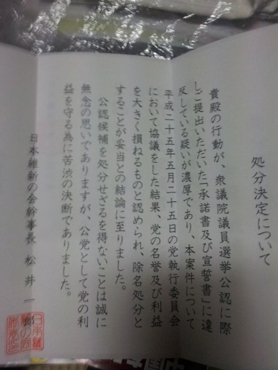 処分決定について
貴殿の行動が、衆議院議員選挙公認に際
しご提出いただいた「承諾書及び宣誓書」に違
反している疑いが濃厚であり、本案件について
平成二十五年五月二十五日の党執行委員会
において協議をした結果、党の名誉及び利益
を大きく損ねるものと認められ、除名処分と
することが妥当との結論に至りました。
公認候補を処分せざるを得ないことは誠に
無念の思いでありますが、公党として党の利
益を守る為に苦渋の決断でありました。
日本維新の会幹事長 松井一